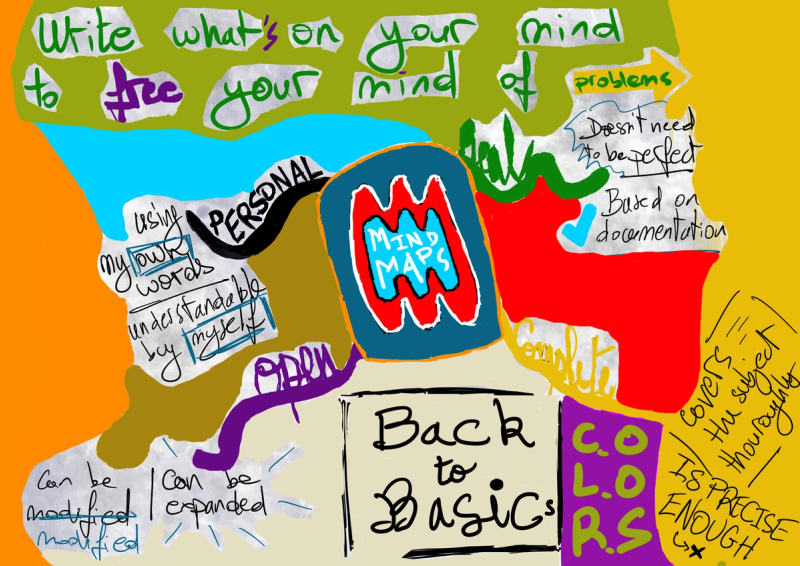 Write what's on your mind
to free your mind of problems
MIND
MAPS
PERSONAL
using
my own
words
understandable
by myself
Doesn't need
to be perfect
Based on
documentation
Open
Can be
modified
modified
Can be
expanded
Complete
covers
the subject
thouroughly
IS PRECISE
ENOUGH
Back
to
Basics
C.O
L.O
R.S